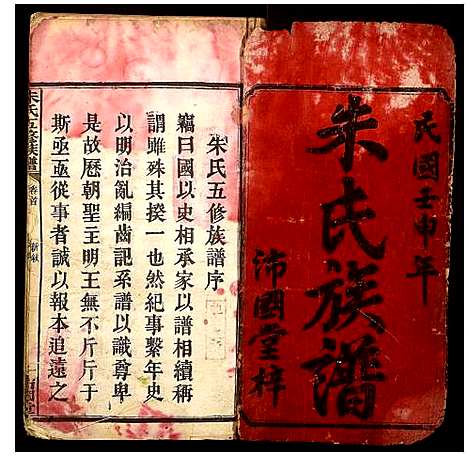 民國壬申年
朱氏族譜
沛國堂梓
朱氏五修族譜序
竊曰國以史相承家以譜相續稱
謂雖殊其揆一也然紀事繫年史
以明治亂編齒記系譜以識尊卑
是故歷朝聖主明王無不斤斤于
斯亟亟從事者誠以報本追遠之
朱氏五修族譜
卷首
新敘